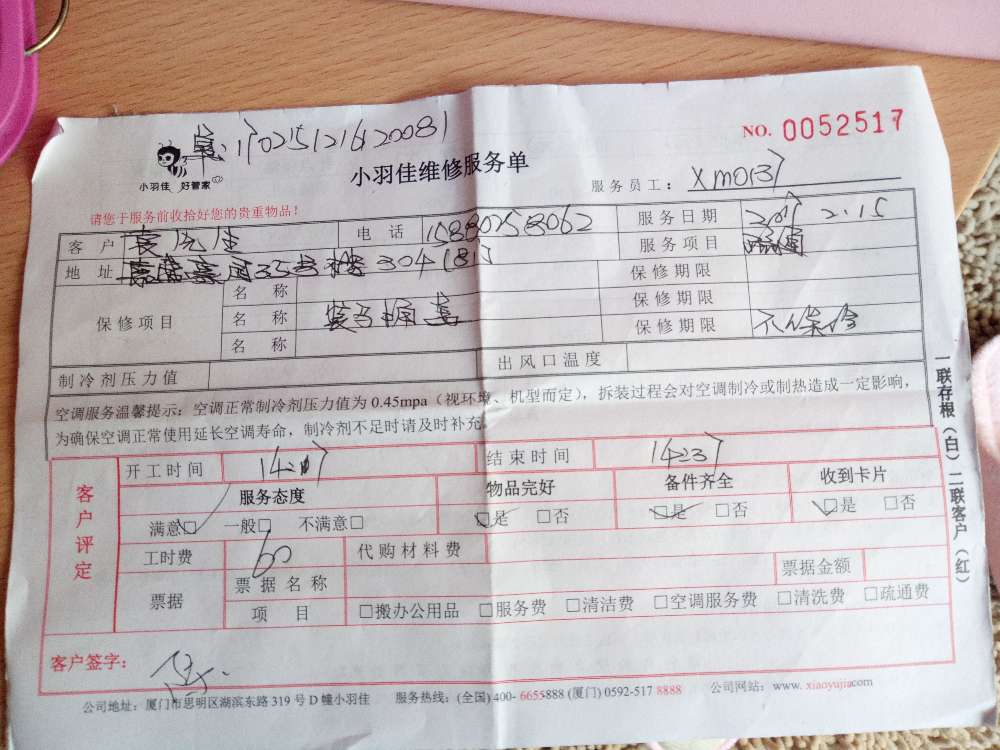 NO. 0052517
单:170251216120081
小羽佳 好管家
小羽佳维修服务单
服务员工: XM0137
请您于服务前收拾好您的贵重物品!
客户 袁先生 电话 15880258062 服务日期 2017 2.15
地址 35号楼 304 服务项目
保修项目 名称 保修期限
名称 保修期限
名称 保修期限 不保修
制冷剂压力值 出风口温度
空调服务温馨提示:空调正常制冷剂压力值为 0.45mpa(视环境、机型而定),拆装过程会对空调制冷或制热造成一定影响,
为确保空调正常使用延长空调寿命,制冷剂不足时请及时补充。
客户评定
开工时间 1427 结束时间 1437
服务态度 物品完好 备件齐全 收到卡片
满意☑ 一般□ 不满意□ ☑是 □否 ☑是 □否 ☑是 □否
工时费 60 代购材料费
票据 票据名称 票据金额
项目 □搬办公用品 □服务费 □清洁费 □空调服务费 □清洗费 □疏通费
客户签字:
公司地址:厦门市思明区湖滨东路 319 号 D 幢小羽佳 服务热线:(全国) 400- 6655888 (厦门) 0592-517 8888 公司网站:www. xiaoyujia.com
一联存根(白)二联客户(红)